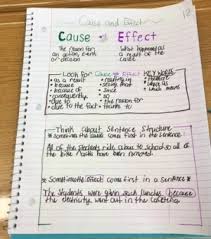 12
Cause and Effect
Cause → Effect
The reason for an action, event or decision
What happened as a result of the cause
Look for Cause & Effect KEY WORDS
• as a result
• because
• because of
• consequently
• due to
• due to the fact
• resulting in
• therefore
• since
• so
• the reason for
• thanks to
• which
Think About Sentence Structure
* sometimes the cause comes first in the sentence *
All of the students ride about to school; all of the bike racks have been removed.
* Sometimes the effect comes first in a sentence *
The students were given sack lunches because the electricity went out in the cafeteria.